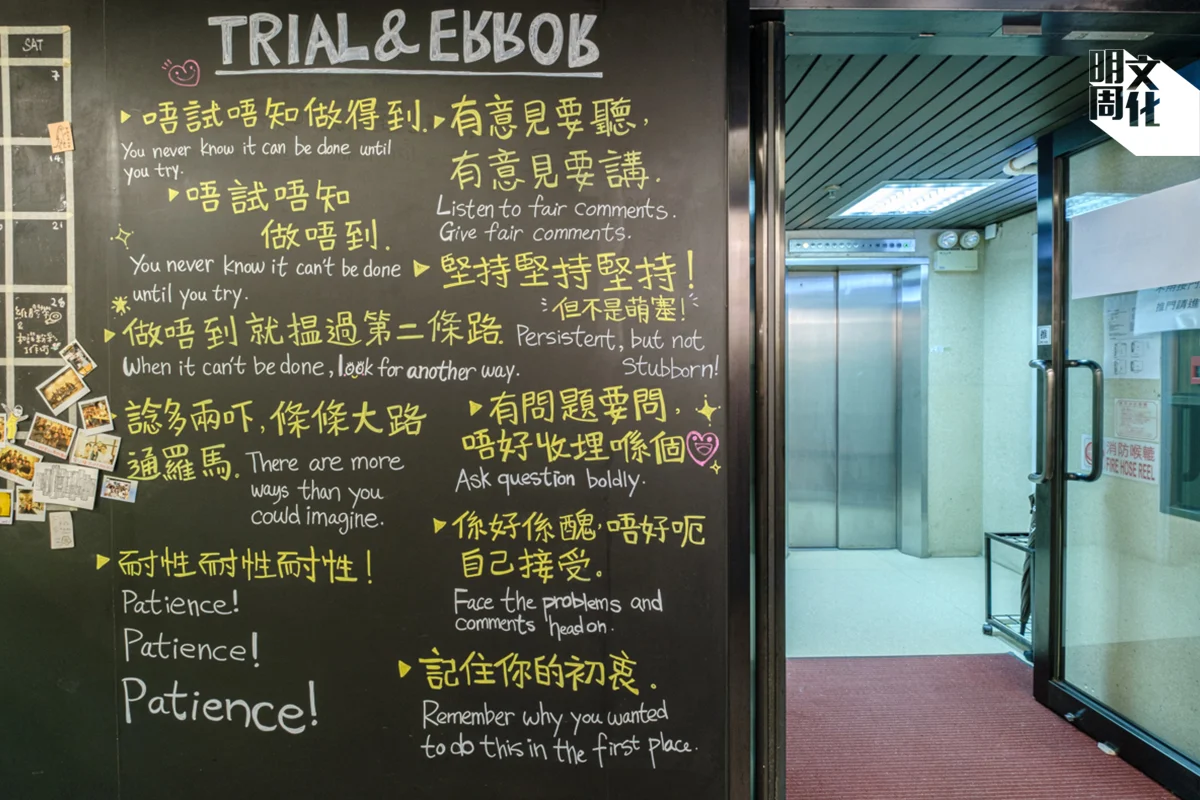 SAT
7
14
21
28
TRIAL & ERROR
唔試唔知做得到.
You never know it can be done until
you try.
唔試唔知
做唔到.
You never know it can't be done
until you try.
做唔到就揾過第二條路.
When it can't be done, look for another way.
諗多兩吓,條條大路
通羅馬.
There are more
ways than you
could imagine.
耐性耐性耐性!
Patience!
Patience!
Patience!
有意見要聽,
有意見要講.
Listen to fair comments.
Give fair comments.
堅持堅持堅持!
但不是萌塞!
Persistent, but not
Stubborn!
有問題要問,
唔好收埋喺個
Ask question boldly.
係好係醜,唔好呃
自己接受。
Face the problems and
comments head on.
記住你的初衷.
Remember why you wanted
to do this in the first place.
明周
文化
推門請進
消防喉轆
FIRE HOSE REEL